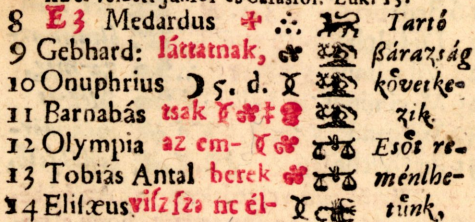 8 E 3 Medardus Tartó
9 Gebhard: láttatnak, ßárazság
10 Onuphrius 5. d. kővetke-
11 Barnabás tsak zik.
12 Olympia az em- Esőt re-
13 Tobiás Antal berek ménlhe-
14 Elisæus viſzſza ne él- tünk,